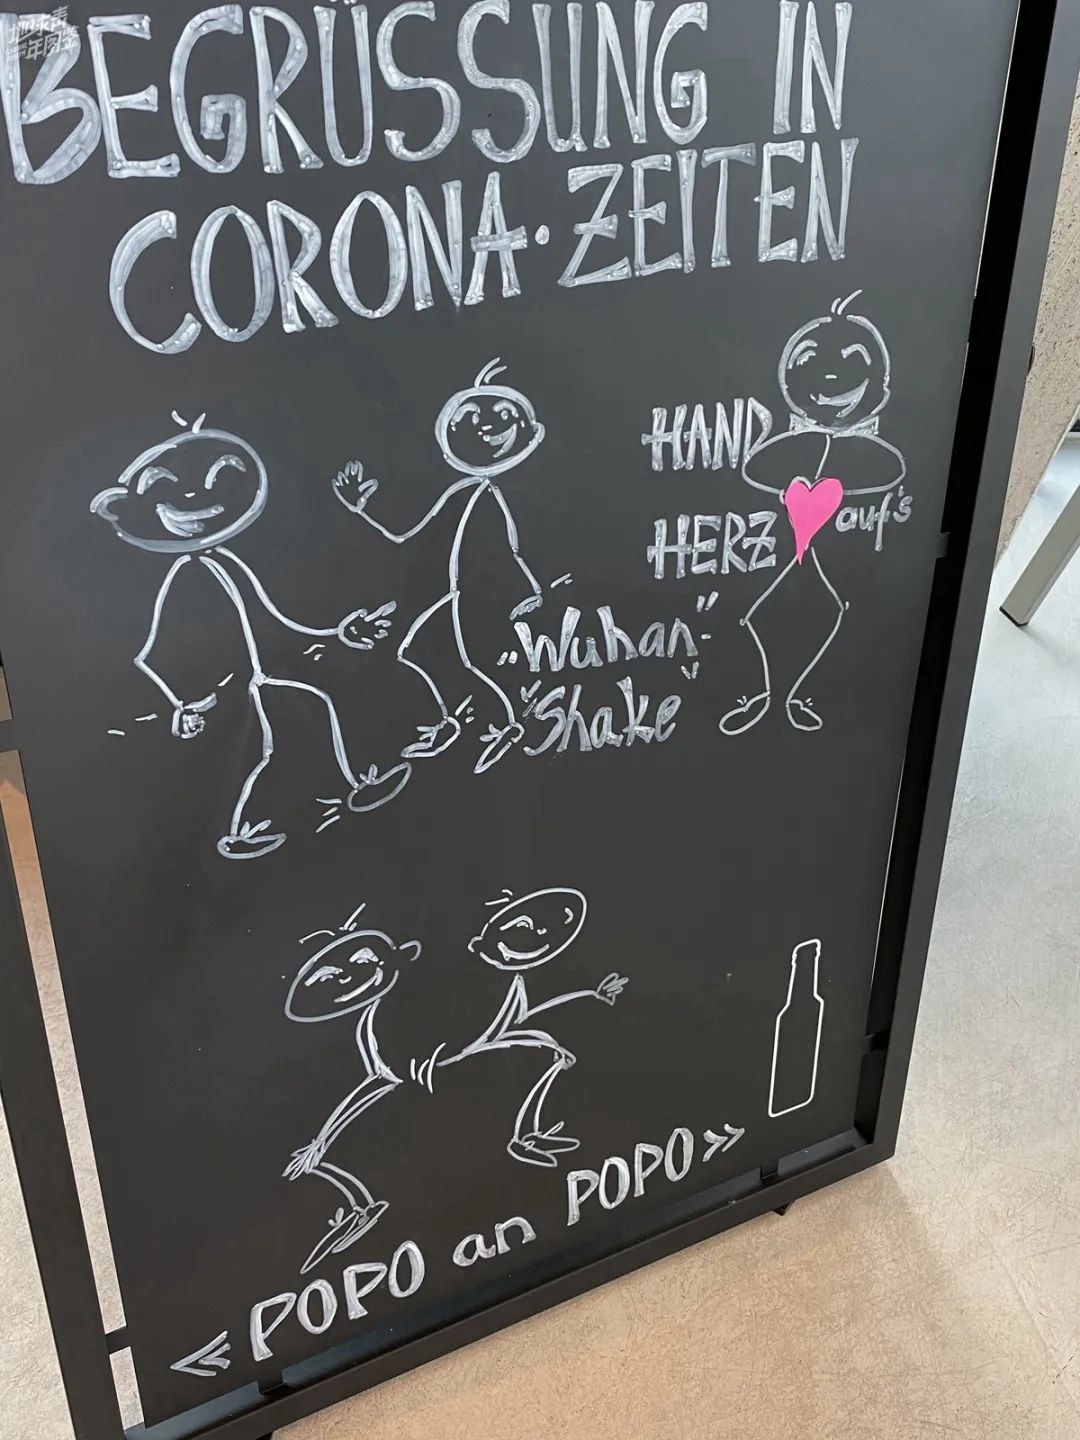 地球青
年图鉴
BEGRÜSSUNG IN
CORONA·ZEITEN
HAND
auf's
HERZ
„Wuhan"
"Shake"
<< POPO an POPO >>